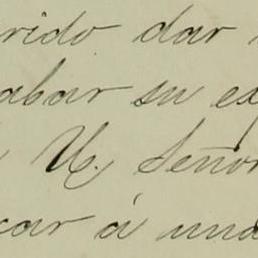 rido dar
abar su ex
U. Señor
car á una